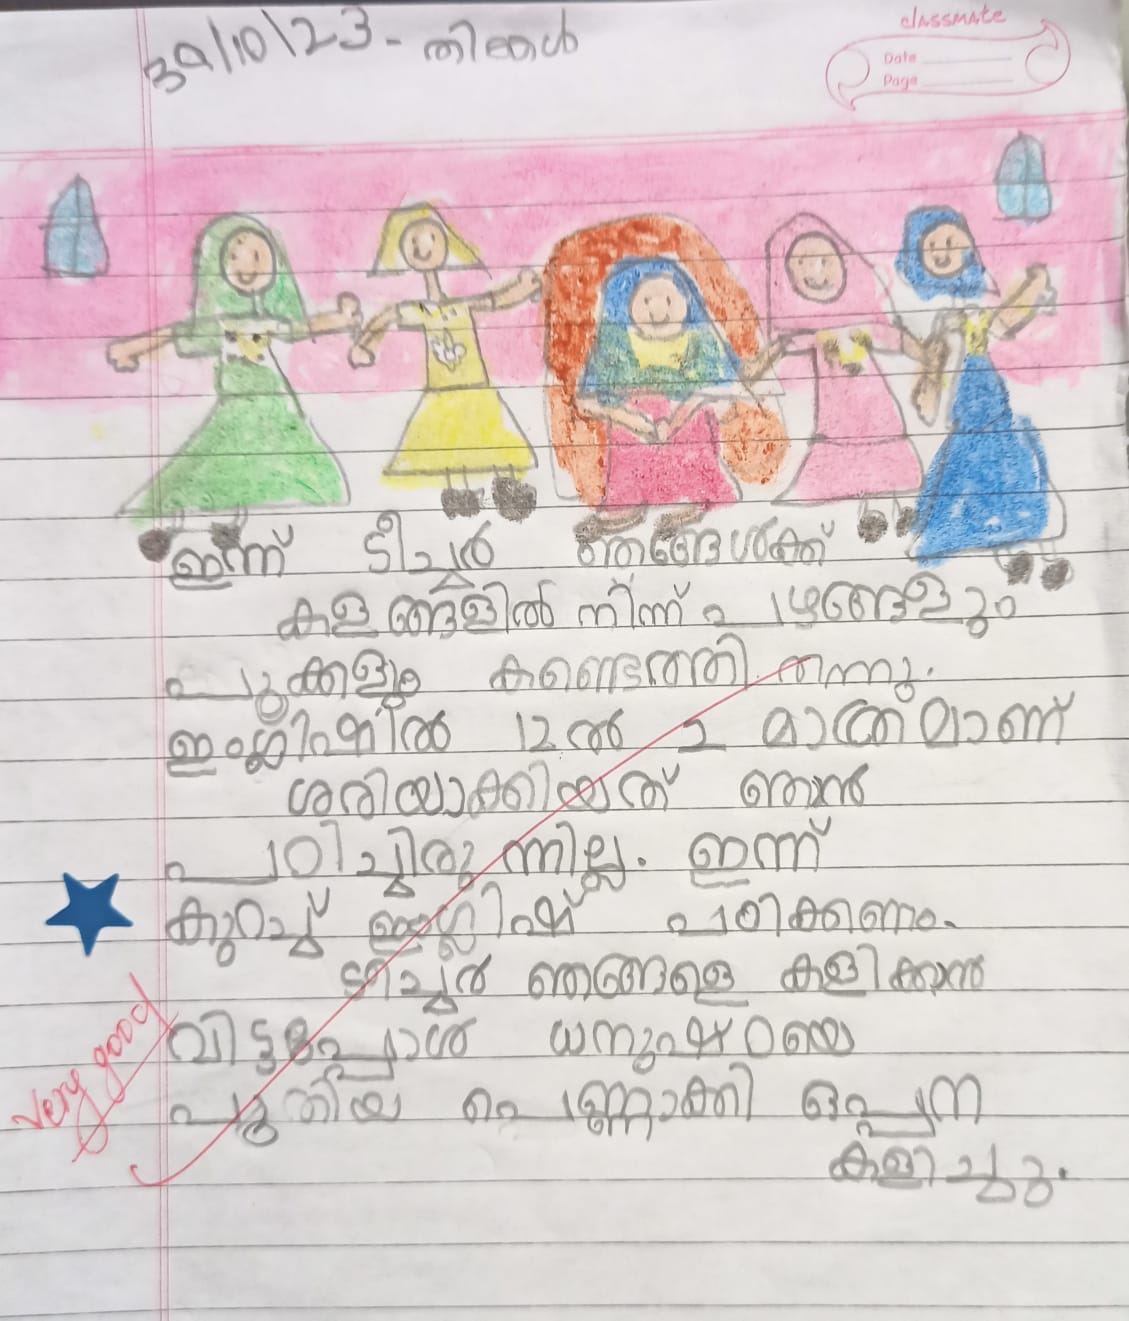 classmate
Date
Page
30/10/23 - തിങ്കൾ
ഇന്ന് ടീച്ചർ ഞങ്ങൾക്ക്
കള്ളങ്ങളിൽ നിന്ന് പഴങ്ങളും
പൂക്കളും കണ്ടെത്തി തന്നു.
ഇംഗ്ലീഷിൽ 12ൽ 2 മാത്രമാണ്
ശരിയാക്കിയത് ഞാൻ
പഠിച്ചിരുന്നില്ല. ഇന്ന്
കുറച്ച് ഇംഗ്ലീഷ് പഠിക്കണം.
ടീച്ചർ ഞങ്ങളെ കളിക്കാൻ
വിട്ടപ്പോൾ
പുതിയ പെണ്ണാക്കി ഒപ്പന
കളിച്ചു.
Very good